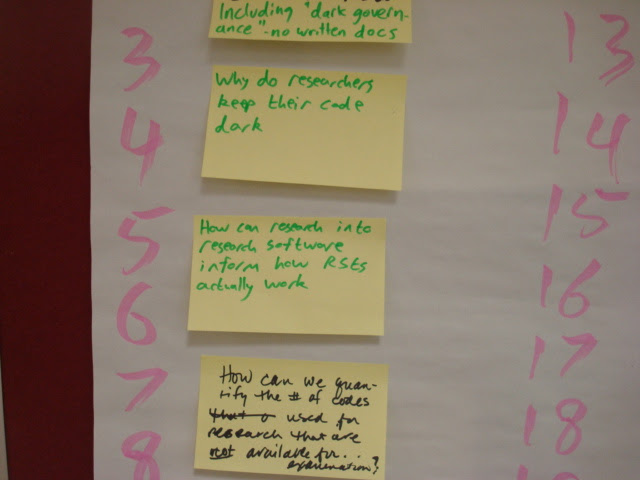 Including "dark govern-
ance" - no written docs
3
13
Why do researchers
keep their code
dark
4
14
5
15
How can research into
research software
inform how RSEs
actually work
6
16
7
17
How can we quan-
tify the # of codes
used for
research that are
not available for..
examination?
8
18